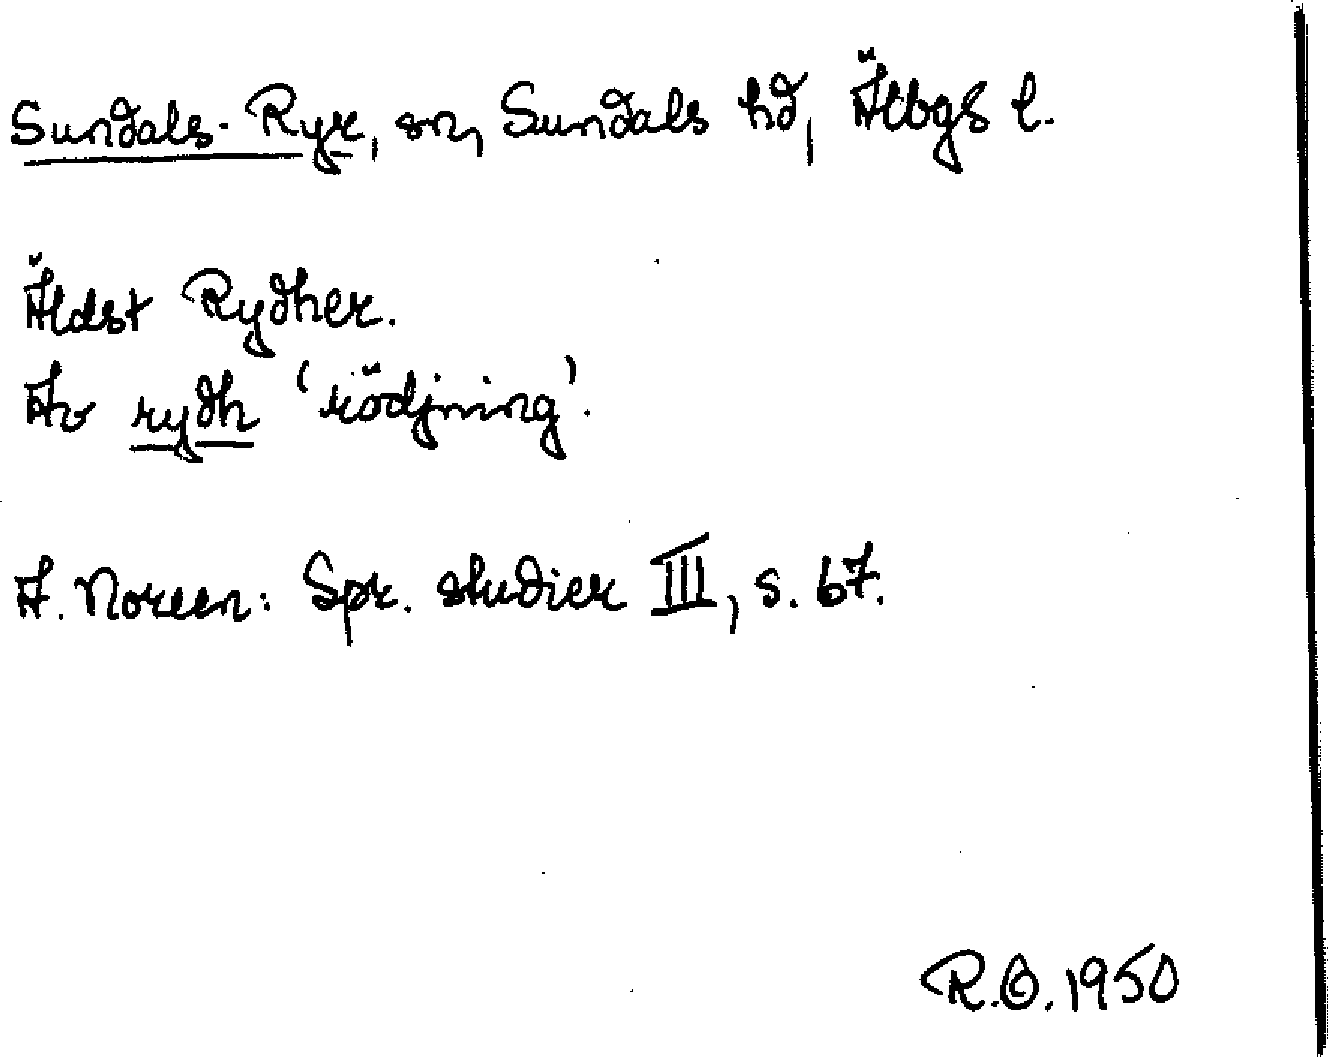 Sundals-Ryr, sn, Sundals hd, Älvbgs l.
Äldst Rydher.
Av rydh 'rödjning'.
A. Noreen: Spr. studier III, s. 67.
R.O. 1950